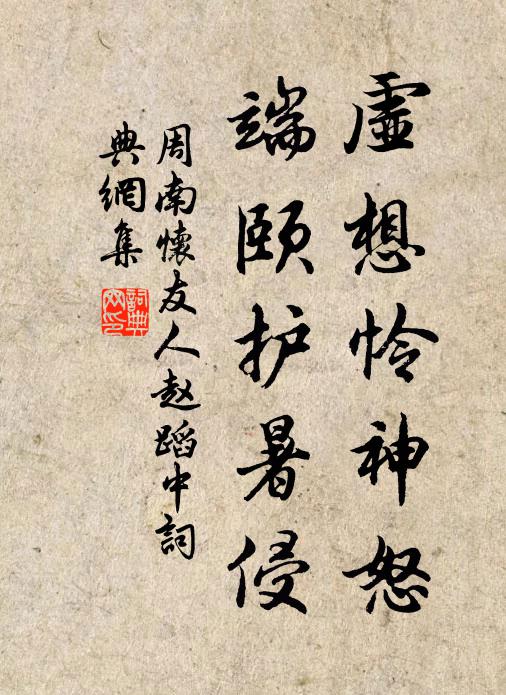 虚想怜神怒
端颐护暑侵
周南怀友人赵蹈中词
典網集
詞典网印